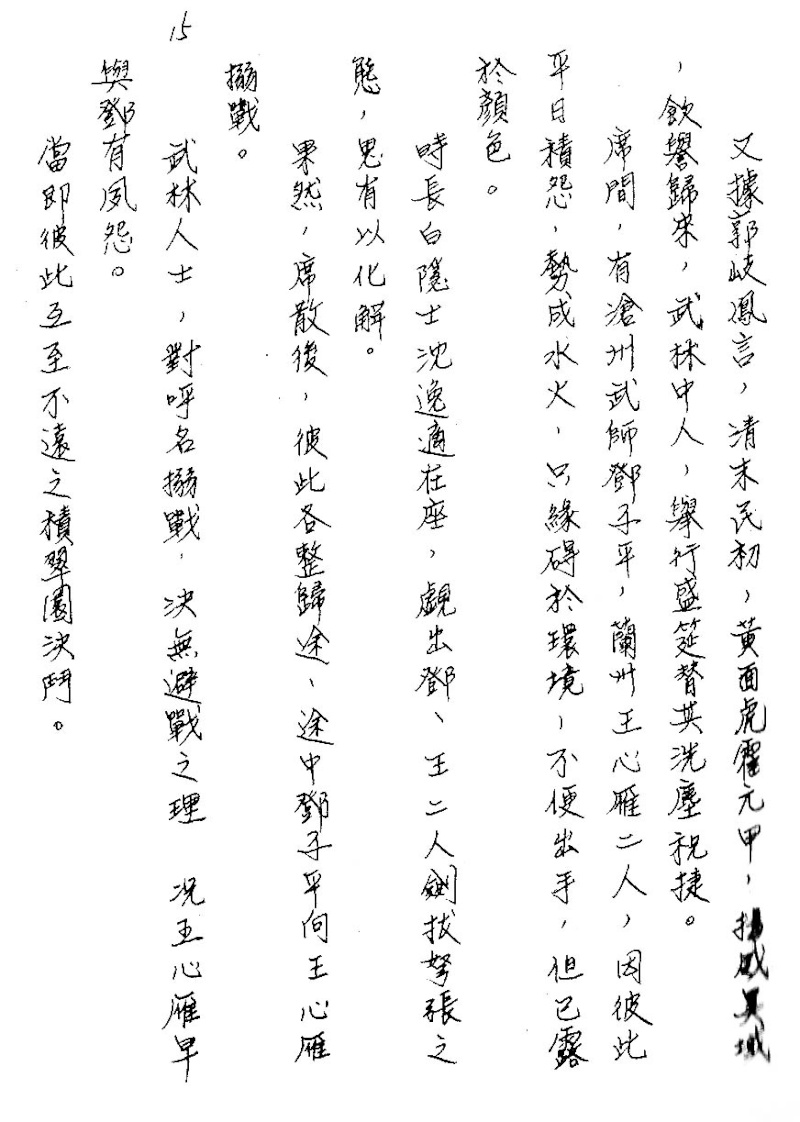 15
又據郭岐鳳言，清末民初，黃面虎霍元甲，揚威異域
，飲譽歸來，武林中人，舉行盛筵替其洗塵祝捷。
席間，有滄州武師鄧子平，蘭州王心雁二人，因彼此
平日積怨，勢成水火，只緣碍於環境，不便出手，但已露
於顏色。
時長白隱士沈逸適在座，覷出鄧、王二人劍拔弩張之
態，思有以化解。
果然，席散後，彼此各整歸途、途中鄧子平向王心雁
搦戰。
武林人士，對呼名搦戰，決無避戰之理　况王心雁早
與鄧有夙怨。
當即彼此互至不遠之積翠園決鬥。